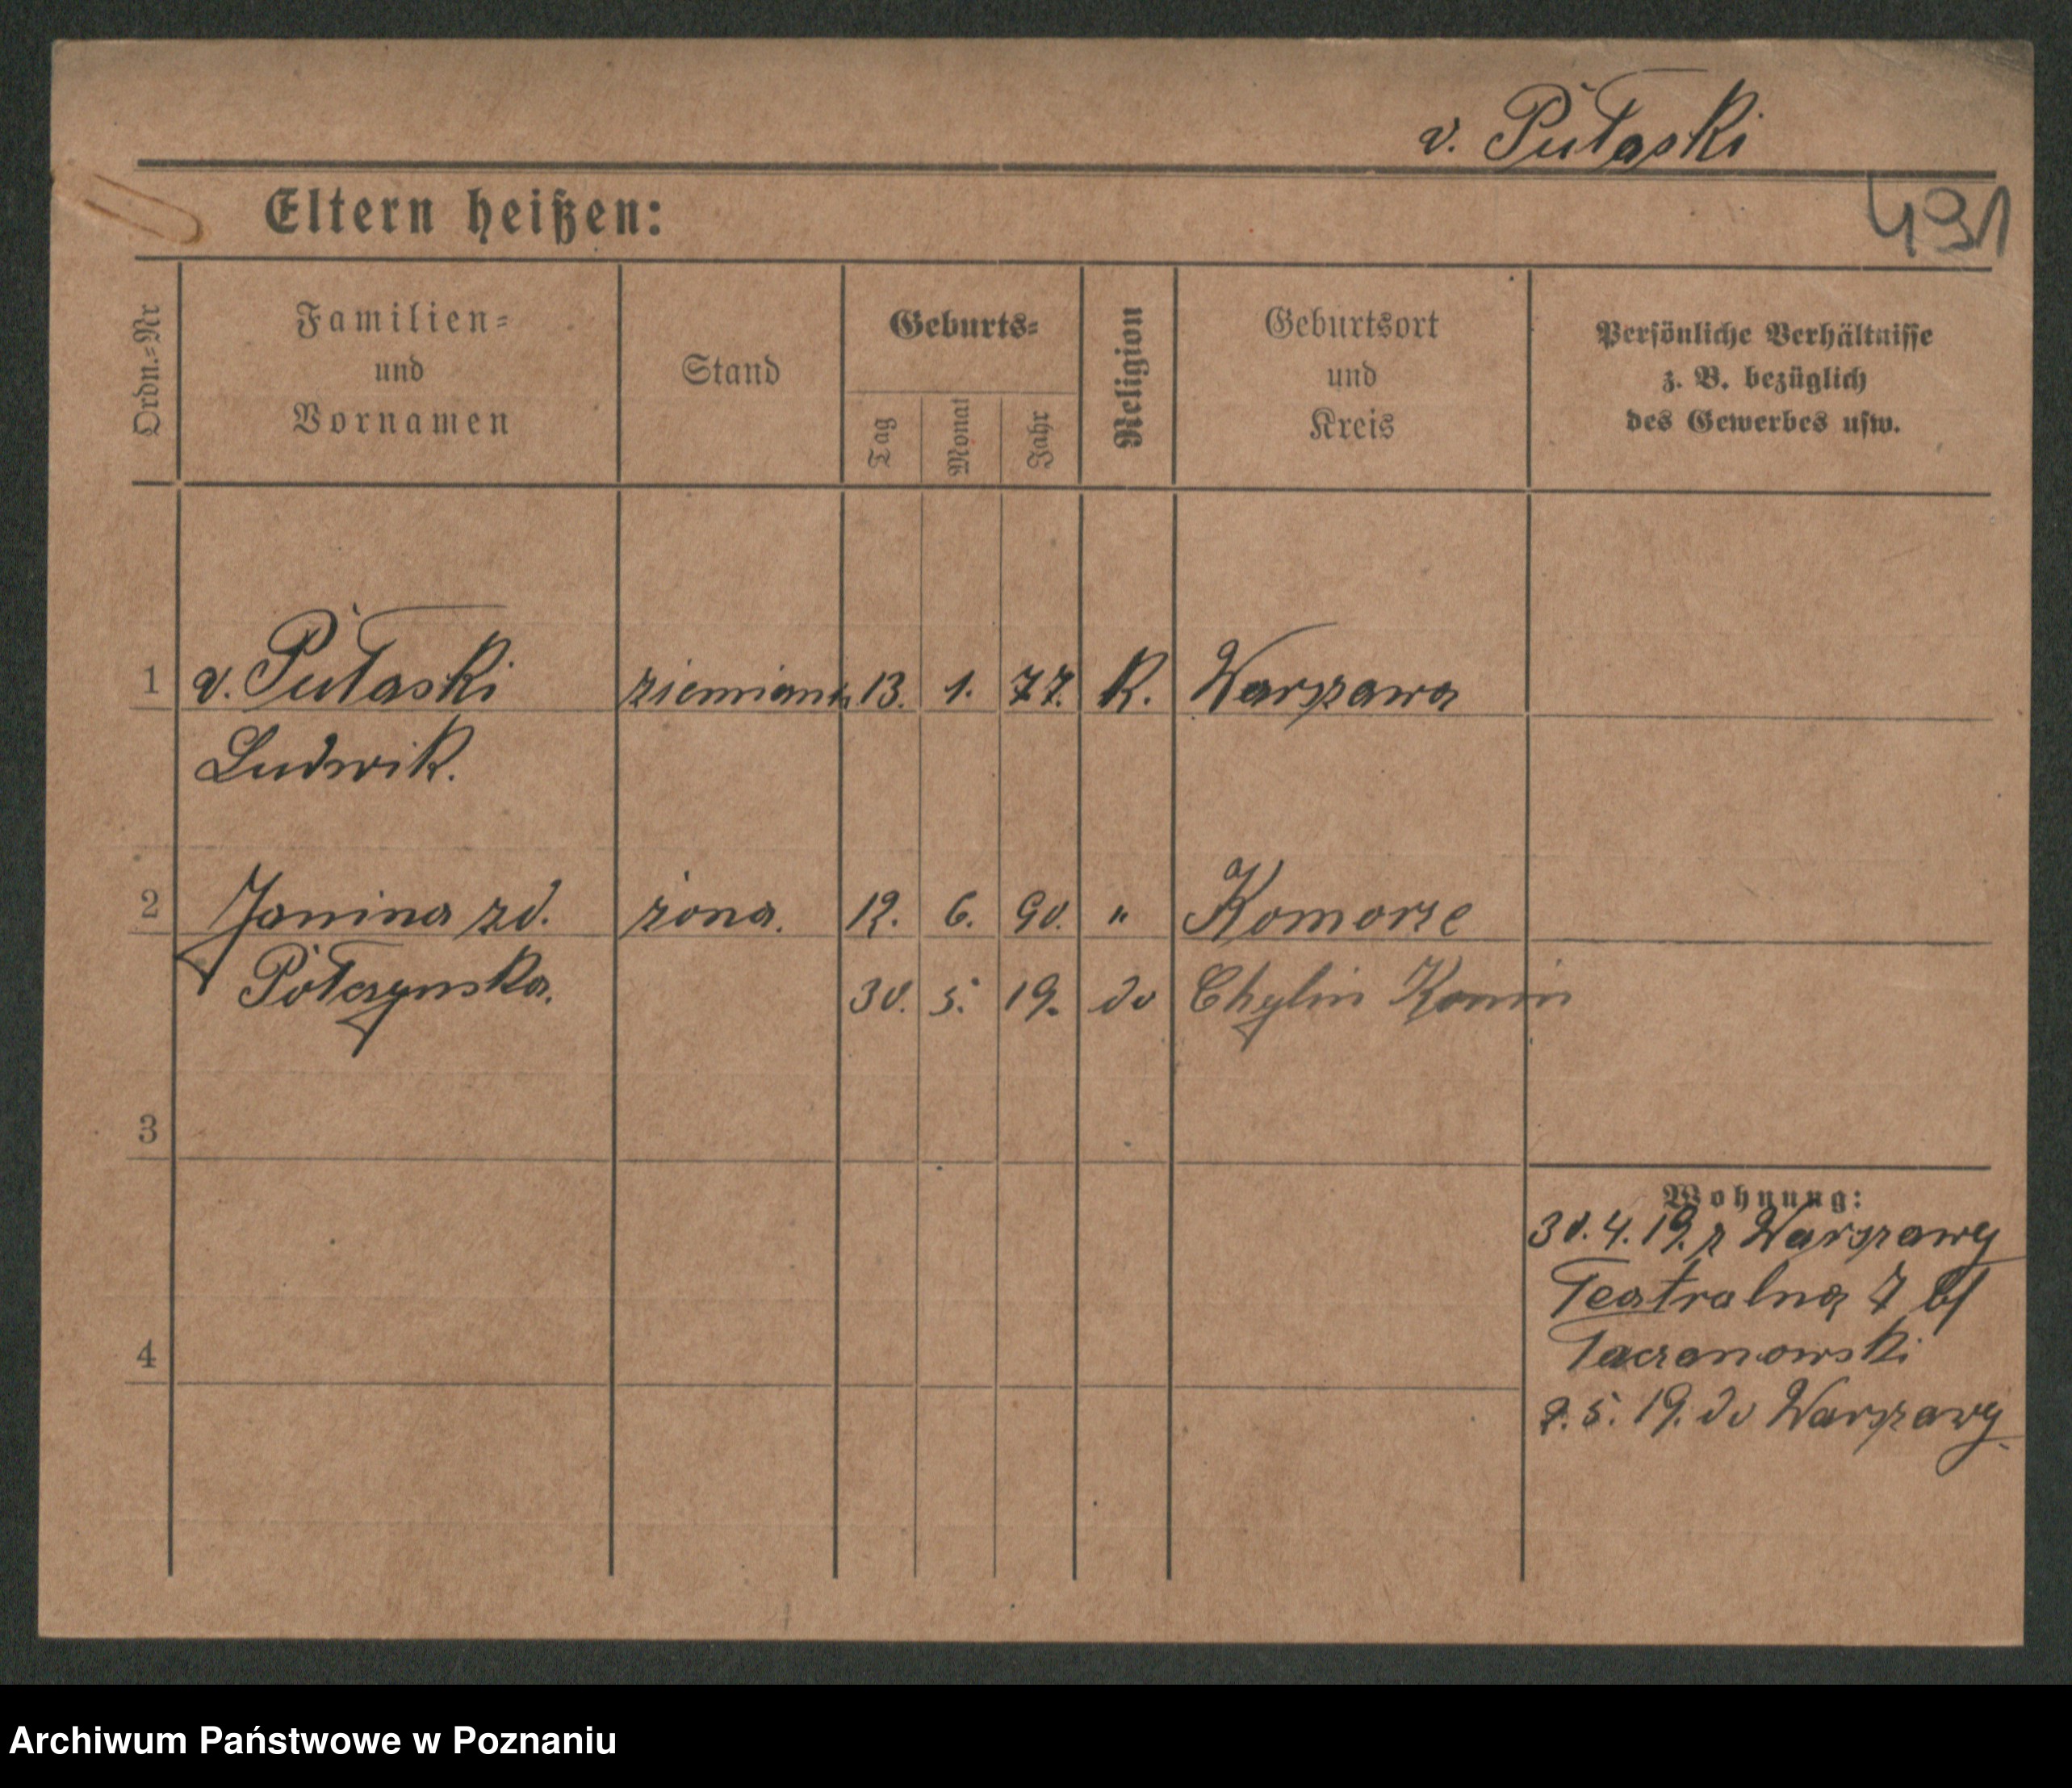 v. Pułaski
Eltern heißen:
491
Ordn.=Nr
Familien=
und
Vornamen
Stand
Geburts=
Tag
Monat
Jahr
Religion
Geburtsort
und
Kreis
Persönliche Verhältnisse
z. B. bezüglich
des Gewerbes usw.
1 v. Pułaski ziemianin 13. 1. 77. K. Warszawa
Ludwik.
2 Janina zd. żona. 12. 6. 90. " Komorze
Półczynska. 30. 5. 19. do Chylin Konin
3
4
Wohnung:
30. 4. 19. z Warszawy
Teatralna 7 bf
Taczanowski
2. 5. 19. do Warszawy
Archiwum Państwowe w Poznaniu